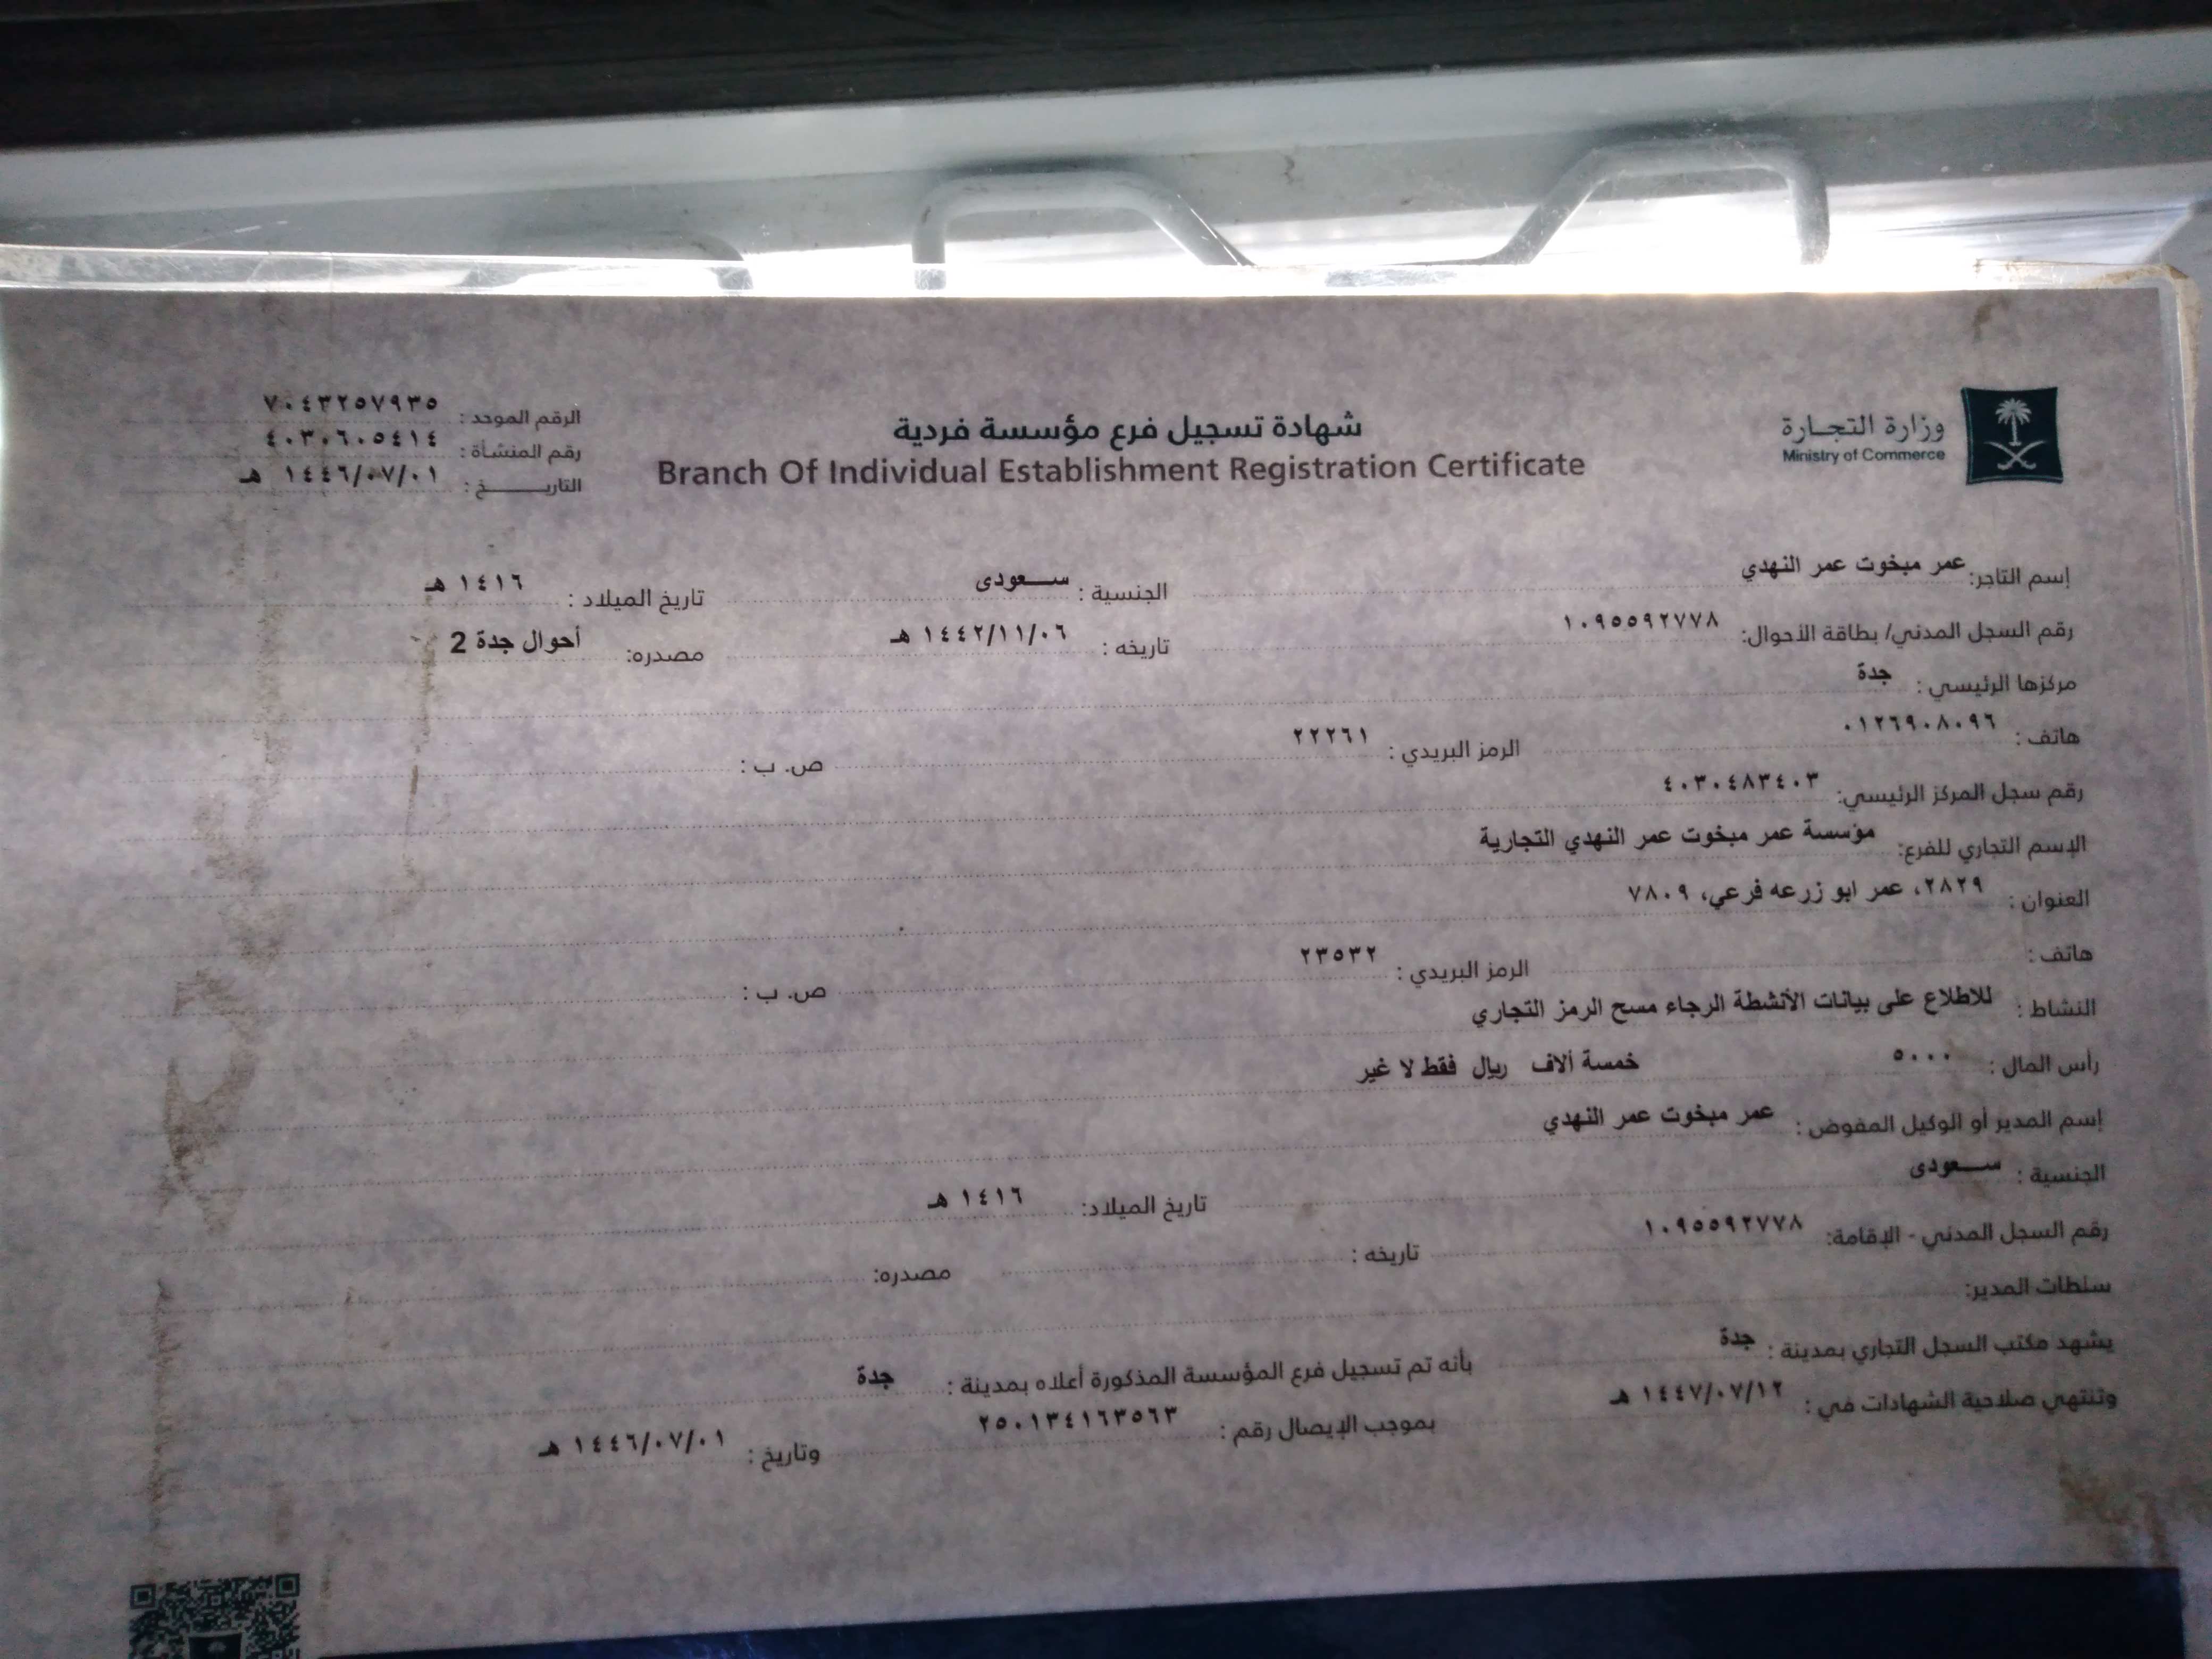 وزارة التجارة
Ministry of Commerce
شهادة تسجيل فرع مؤسسة فردية
Branch Of Individual Establishment Registration Certificate
الرقم الموحد : ٧٠٤٣٢٥٧٩٣٥
رقم المنشأة : ٤٠٣٠٦٠٥٤١٤
التاريـــــخ : ١٤٤٦/٠٧/٠١ هـ
إسم التاجر: عمر مبخوت عمر النهدي الجنسية : ســعودى تاريخ الميلاد : ١٤١٦ هـ
رقم السجل المدني/ بطاقة الأحوال: ١٠٩٥٥٩٢٧٧٨ تاريخه : ١٤٤٢/١١/٠٦ هـ مصدره: أحوال جدة 2
مركزها الرئيسي : جدة
هاتف : ٠١٢٦٩٠٨٠٩٦ الرمز البريدي : ٢٢٢٦١ ص. ب :
رقم سجل المركز الرئيسي: ٤٠٣٠٤٨٣٤٠٣
الإسم التجاري للفرع: مؤسسة عمر مبخوت عمر النهدي التجارية
العنوان : ٢٨٢٩، عمر ابو زرعه فرعي، ٧٨٠٩
هاتف : الرمز البريدي : ٢٣٥٣٢ ص. ب :
النشاط : للاطلاع على بيانات الأنشطة الرجاء مسح الرمز التجاري
رأس المال : ٥٠٠٠ خمسة ألاف ريال فقط لا غير
إسم المدير أو الوكيل المفوض : عمر مبخوت عمر النهدي
الجنسية : ســعودى تاريخ الميلاد: ١٤١٦ هـ
رقم السجل المدني - الإقامة: ١٠٩٥٥٩٢٧٧٨ تاريخه : مصدره:
سلطات المدير:
يشهد مكتب السجل التجاري بمدينة : جدة بأنه تم تسجيل فرع المؤسسة المذكورة أعلاه بمدينة : جدة
وتنتهي صلاحية الشهادات في : ١٤٤٧/٠٧/١٢ هـ بموجب الإيصال رقم : ٢٥٠١٣٤١٦٣٥٦٣ وتاريخ : ١٤٤٦/٠٧/٠١ هـ